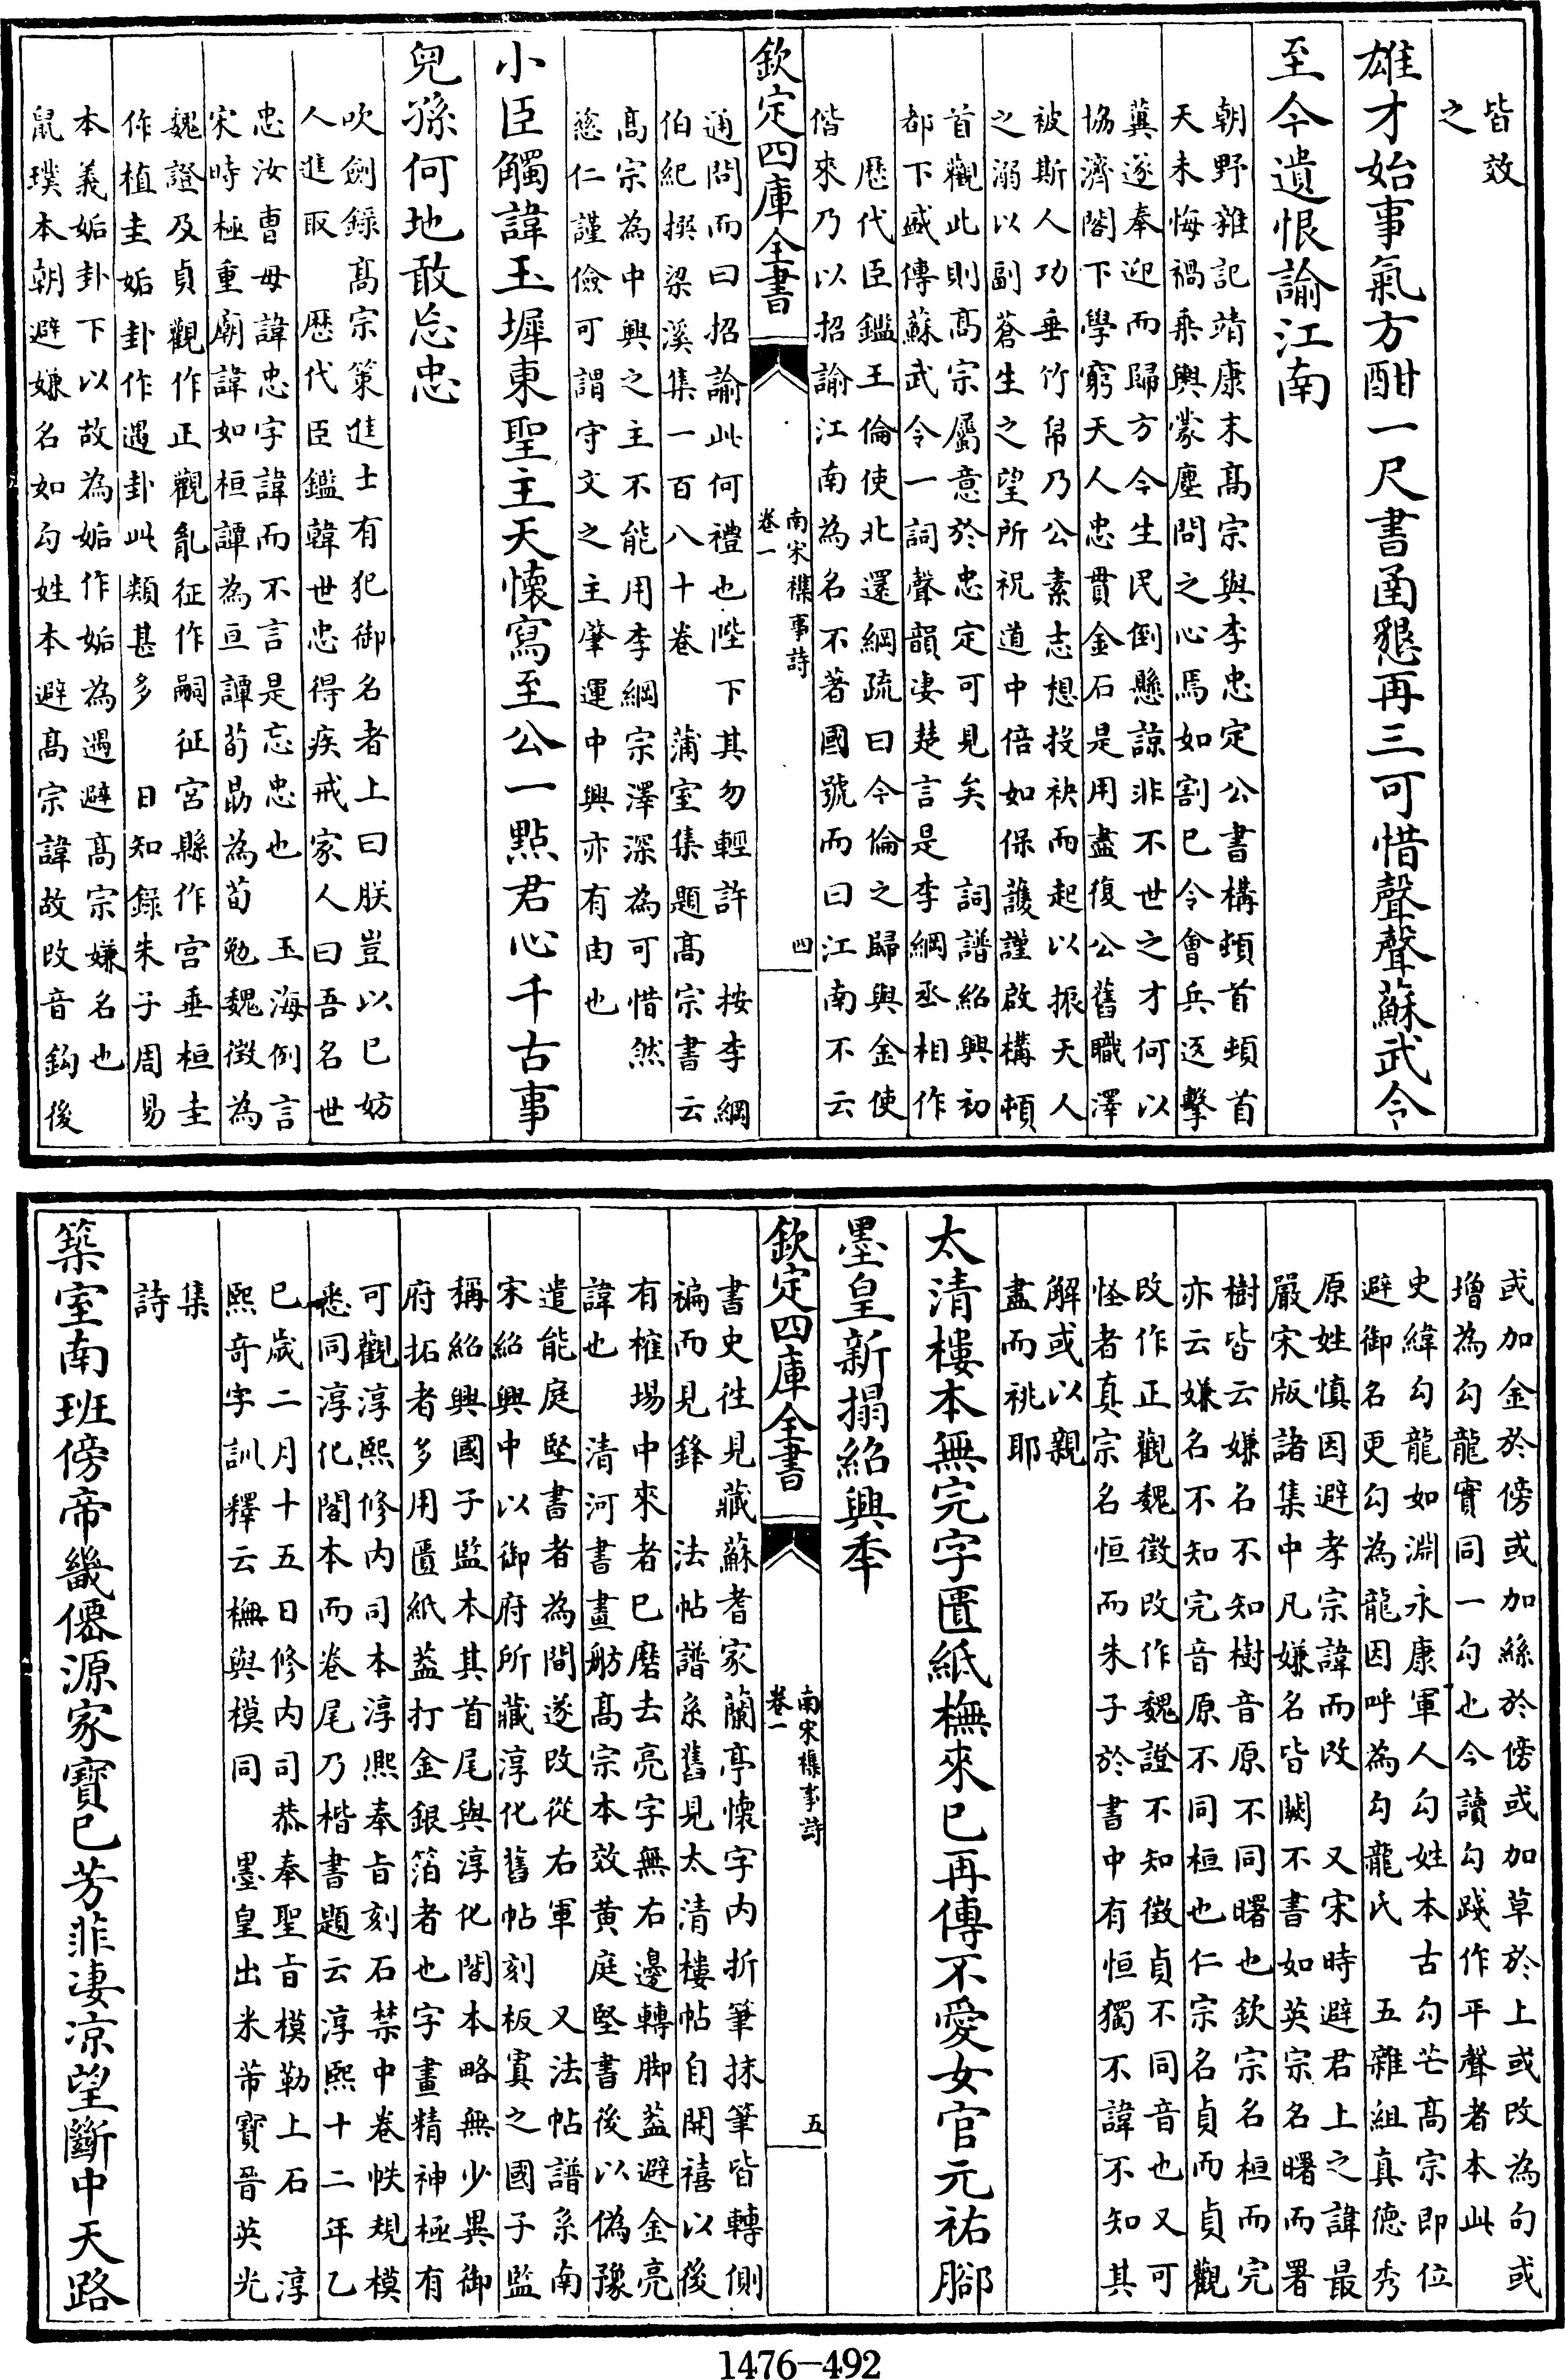 皆效
之
雄才始事氣方酣一尺書函懇再三可惜聲聲蘇武令
至今遺恨諭江南
朝野雜記靖康末髙宗與李忠定公書構頓首頓首
天未悔禍乘輿蒙塵問之心焉如割已令會兵迓擊
冀遂奉迎而歸方今生民倒懸諒非不世之才何以
協濟閣下學窮天人忠貫金石是用盡復公舊職澤
被斯人功垂竹帛乃公素志想投袂而起以振天人
之溺以副蒼生之望所祝道中倍如保護謹啟構頓
首觀此則髙宗屬意於忠定可見矣 詞譜紹興初
都下盛傳蘇武令一詞聲韻凄楚言是李綱丞相作
歴代臣鑑王倫使北還綱疏曰今倫之歸與金使
偕來乃以招諭江南為名不著國號而曰江南不云
欽定四庫全書
南宋襍事詩
卷一
四
通問而曰招諭此何禮也陛下其勿輕許 按李綱
伯紀撰梁溪集一百八十卷 蒲室集題髙宗書云
髙宗為中興之主不能用李綱宗澤深為可惜然
慈仁謹儉可謂守文之主肇運中興亦有由也
小臣觸諱玉墀東聖主天懷寫至公一點君心千古事
兒孫何地敢忘忠
吹劍錄髙宗策進士有犯御名者上曰朕豈以已妨
人進取 歴代臣鑑韓世忠得疾戒家人曰吾名世
忠汝曹毋諱忠字諱而不言是忘忠也 玉海例言
宋時極重廟諱如桓譚為亘譚荀勗為荀勉魏徴為
魏證及貞觀作正觀亂征作嗣征宮縣作宫垂桓圭
作植圭姤卦作遇卦此類甚多 日知錄朱子周易
本義姤卦下以故為姤作姤為遇避髙宗嫌名也
鼠璞本朝避嫌名如勾姓本避髙宗諱故改音鈎後
或加金於傍或加絲於傍或加草於上或改為句或
增為勾龍實同一勾也今讀勾踐作平聲者本此
史緯勾龍如淵永康軍人勾姓本古勾芒髙宗即位
避御名更勾為龍因呼為勾龍氏 五雜組真德秀
原姓慎因避孝宗諱而改 又宋時避君上之諱最
嚴宋版諸集中凡嫌名皆闕不書如英宗名曙而署
樹皆云嫌名不知樹音原不同曙也欽宗名桓而完
亦云嫌名不知完音原不同桓也仁宗名貞而貞觀
改作正觀魏徴改作魏證不知徴貞不同音也又可
怪者真宗名恒而朱子於書中有恒獨不諱不知其
解或以親
盡而祧耶
太清樓本無完字匱紙橅來已再傳不愛女官元祐腳
墨皇新搨紹興年
欽定四庫全書
南宋襍事詩
卷一
五
書史往見藏蘇耆家蘭亭懷字内折筆抹筆皆轉側
褊而見鋒 法帖譜系舊見太清樓帖自開禧以後
有榷場中來者已磨去亮字無右邊轉脚葢避金亮
諱也 清河書畫舫髙宗本效黄庭堅書後以偽豫
遣能庭堅書者為間遂改從右軍 又法帖譜系南
宋紹興中以御府所藏淳化舊帖刻板寘之國子監
稱紹興國子監本其首尾與淳化閣本略無少異御
府拓者多用匱紙葢打金銀箔者也字畫精神極有
可觀淳熙修内司本淳熙奉旨刻石禁中卷帙規模
悉同淳化閣本而卷尾乃楷書題云淳熙十二年乙
巳歲二月十五日修内司恭奉聖旨模勒上石 淳
熙奇字訓釋云橅與模同 墨皇出米芾寶晉英光
集
詩
築室南班傍帝畿僊源家寶已芳菲凄凉望斷中天路
1476—492